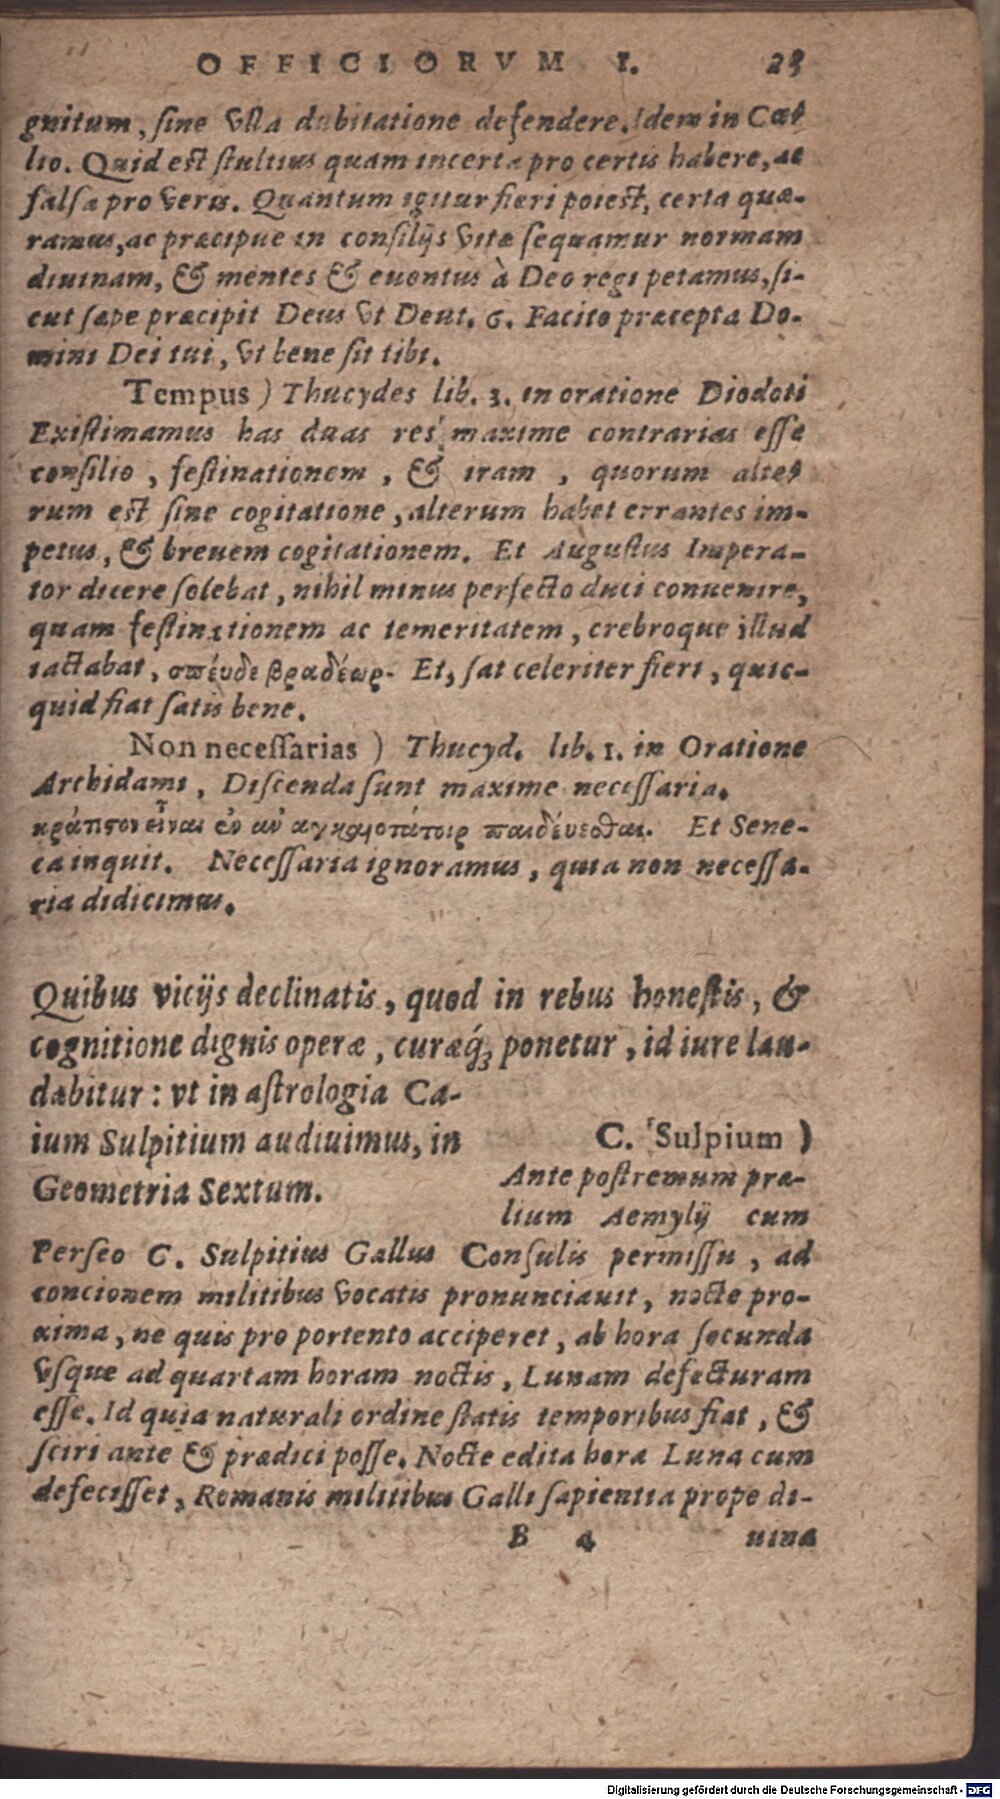 OFFICIORVM I. 23
gnitum, sine vlla dubitatione defendere. Idem in Cæ-
lio. Quid est stultius quam incerta pro certis habere, ac
falsa pro veris. Quantum igitur fieri potest, certa quæ-
ramus, ac præcipue in consilijs vitæ sequamur normam
diuinam, & mentes & euentus à Deo regi petamus, si-
cut sæpe præcipit Deus vt Deut. 6. Facito præcepta Do-
mini Dei tui, vt bene sit tibi.
Tempus ) Thucydes lib. 3. in oratione Diodoti
Existimamus has duas res maxime contrarias esse
consilio, festinationem, & iram, quorum alte-
rum est sine cogitatione, alterum habet errantes im-
petus, & breuem cogitationem. Et Augustus Impera-
tor dicere solebat, nihil minus perfecto duci conuenire,
quam festinationem ac temeritatem, crebroque illud
iactabat, σπέυδε βραδέως. Et, sat celeriter fieri, quic-
quid fiat satis bene.
Non necessarias ) Thucyd. lib. 1. in Oratione
Archidami, Discenda sunt maxime necessaria.
κράτιστον εἶναι ἐν ἀναγκαιοτάτοις παιδέυεσθαι. Et Sene-
ca inquit. Necessaria ignoramus, quia non necessa-
ria didicimus.
Quibus vicijs declinatis, quod in rebus honestis, &
cognitione dignis operæ, curæq́ꝫ ponetur, id iure lau-
dabitur: vt in astrologia Ca-
ium Sulpitium audiuimus, in
Geometria Sextum.
C. Sulpium )
Ante postremum præ-
lium Aemylij cum
Perseo C. Sulpitius Gallus Consulis permissu, ad
concionem militibus vocatis pronunciauit, nocte pro-
xima, ne quis pro portento acciperet, ab hora secunda
vsque ad quartam horam noctis, Lunam defecturam
esse. Id quia naturali ordine statis temporibus fiat, &
sciri ante & prædici posse. Nocte edita hora Luna cum
defecisset, Romanis militibus Galli sapientia prope di-
B 4 uina
Digitalisierung gefördert durch die Deutsche Forschungsgemeinschaft - DFG